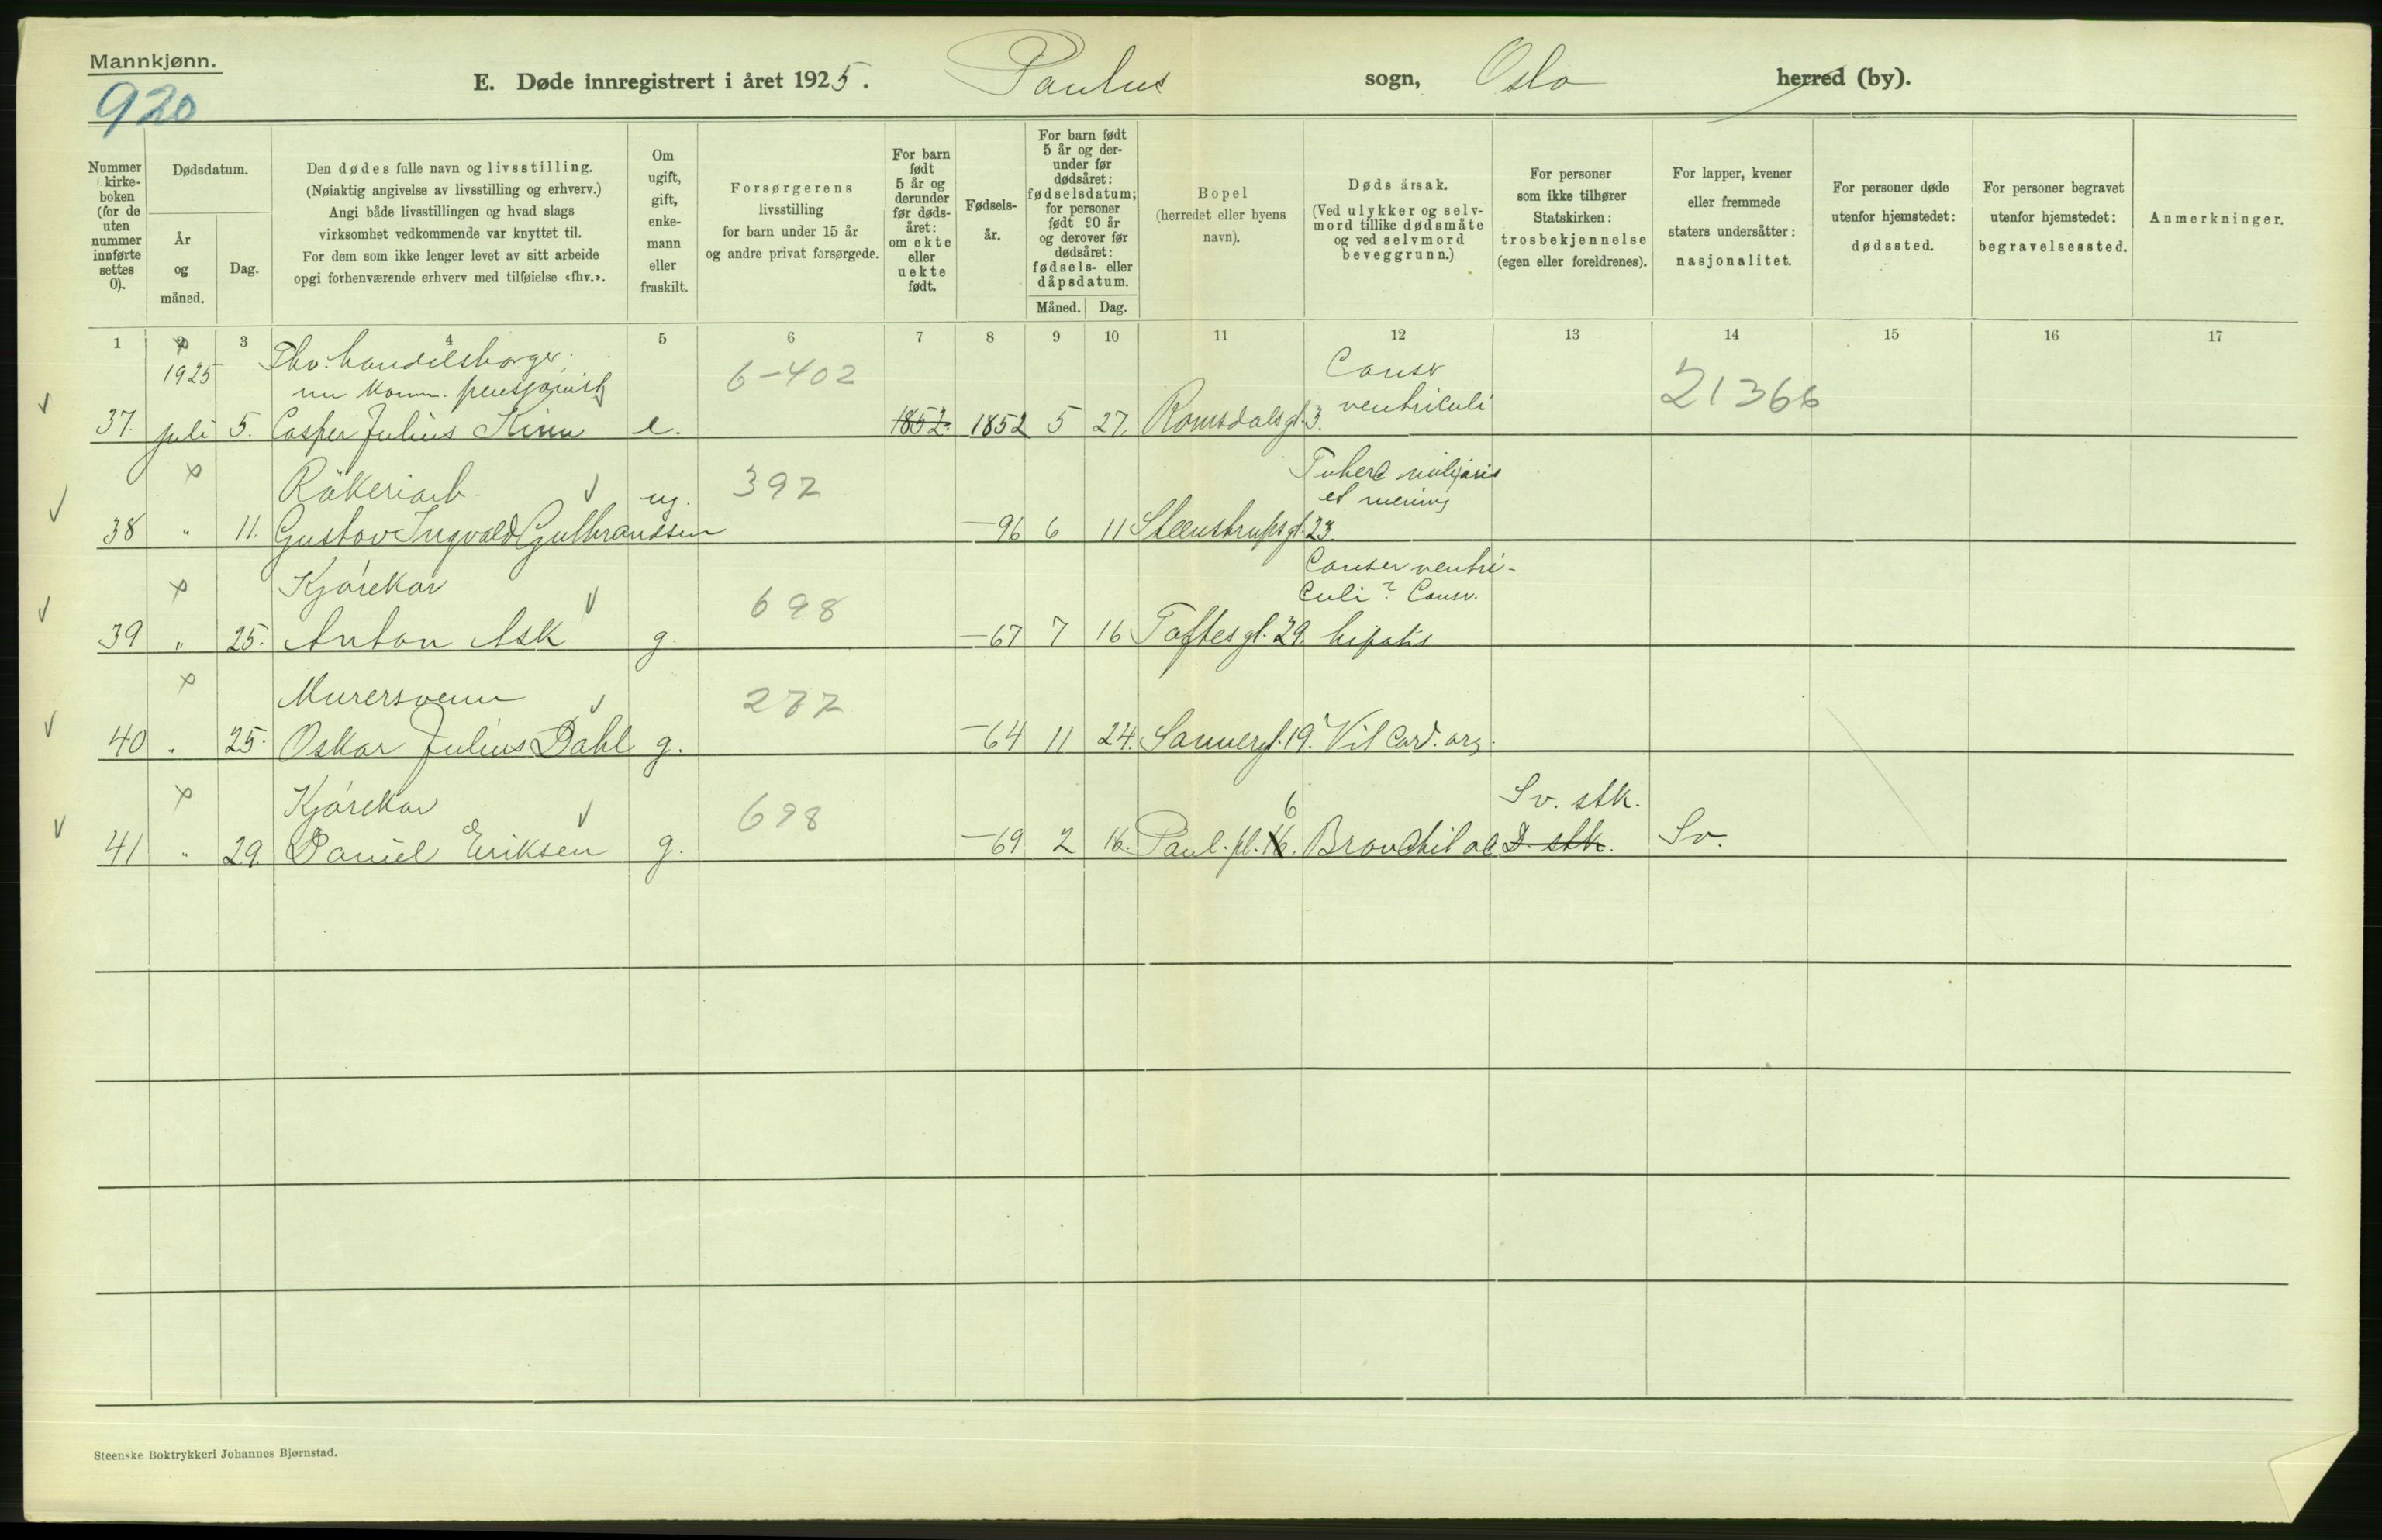 Mannkjønn.
920
E. Døde innregistrert i året 1925. Paulus sogn, Oslo herred (by).
Nummer i kirkeboken (for de uten nummer innførte settes 0).
Dødsdatum.
År og måned.
Dag.
Den dødes fulle navn og livsstilling.
(Nøiaktig angivelse av livsstilling og erhverv.)
Angi både livsstillingen og hvad slags
virksomhet vedkommende var knyttet til.
For dem som ikke lenger levet av sitt arbeide
opgi forhenværende erhverv med tilføielse «fhv.».
Om ugift, gift, enkemann eller fraskilt.
Forsørgerens
livsstilling
for barn under 15 år
og andre privat forsørgede.
For barn født 5 år og derunder før dødsåret: om ekte eller uekte født.
Fødselsår.
For barn født 5 år og derunder før dødsåret: fødselsdatum; for personer født 90 år og derover før dødsåret: fødsels- eller dåpsdatum.
Måned. Dag.
Bopel
(herredet eller byens
navn).
Dødsårsak.
(Ved ulykker og selvmord tillike dødsmåte og ved selvmord beveggrunn.)
For personer
som ikke tilhører
Statskirken:
trosbekjennelse
(egen eller foreldrenes).
For lapper, kvener
eller fremmede
staters undersåtter:
nasjonalitet.
For personer døde
utenfor hjemstedet:
dødssted.
For personer begravet
utenfor hjemstedet:
begravelsessted.
Anmerkninger.
1 2 3 4 5 6 7 8 9 10 11 12 13 14 15 16 17
1925 Fhv. handelsborger, 6-402 Cancer 21366
nu komm. pensjonist
37. juli 5. Casper Julius Kinn e. 1852. 1852 5 27. Romsdalsgt. 3. ventriculi
x Räkeriarb. 392 Tuberc miliaris
et mening
38 " 11. Gustav Ingvald Gulbrandsen ug. -96 6 11 Steenstrupsgt. 23.
x Kjørekar 698 Cancer ventri-
culi? Canc.
39 " 25. Anton Ask g. -67 7 16 Toftesgt. 29. hepatis
x Murersvenn 277
40 " 25. Oskar Julius Dahl g. -64 11 24. Sannergt. 19. Vit. cord. org.
x Kjørekar 698 6 Sv. stk.
41 " 29. Daniel Eriksen g. -69 2 16. Paul. pl. 16. Bronchit ac D. stk. Sv.
Steenske Boktrykkeri Johannes Bjørnstad.